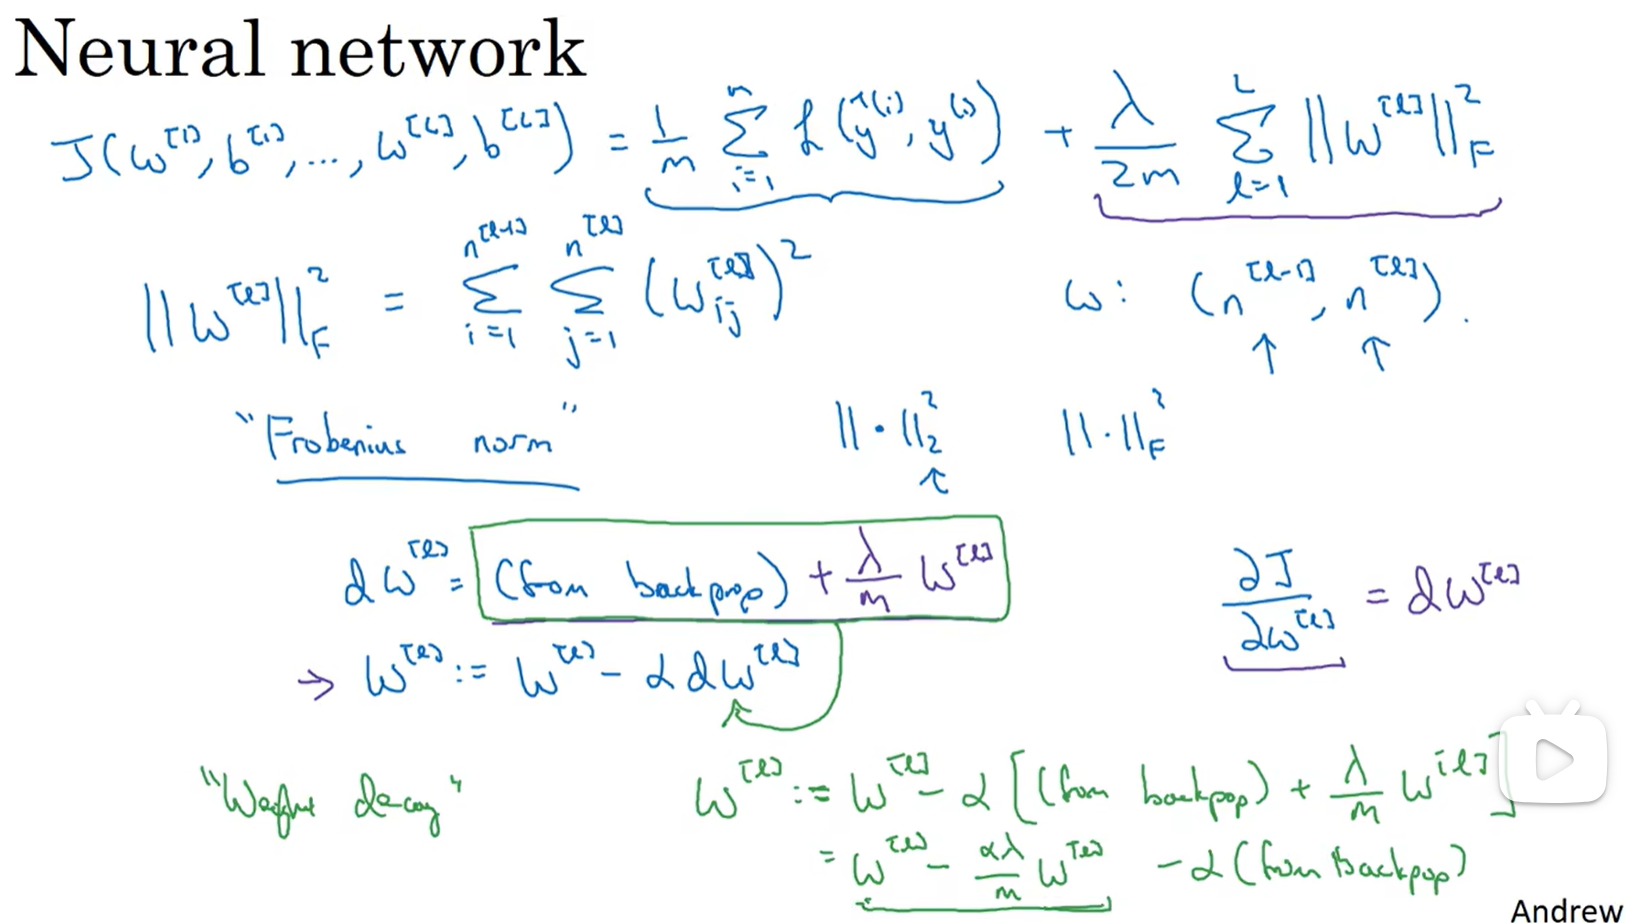 Neural network
J(w^[1], b^[1], ..., w^[L], b^[L]) = 1/m Σ_{i=1}^{m} L(ŷ^(i), y^(i)) + λ/2m Σ_{l=1}^{L} ||w^[l]||_F^2
||w^[l]||_F^2 = Σ_{i=1}^{n^[l-1]} Σ_{j=1}^{n^[l]} (w_ij^[l])^2 w: (n^[l-1], n^[l]).
"Frobenius norm" ||·||_2^2 ||·||_F^2
dw^[l] = (from backprop) + λ/m w^[l] ∂J/∂w^[l] = dw^[l]
→ w^[l] := w^[l] - α dw^[l]
"Weight decay" w^[l] := w^[l] - α [(from backpop) + λ/m w^[l]]
= w^[l] - αλ/m w^[l] - α (from backpop)
Andrew